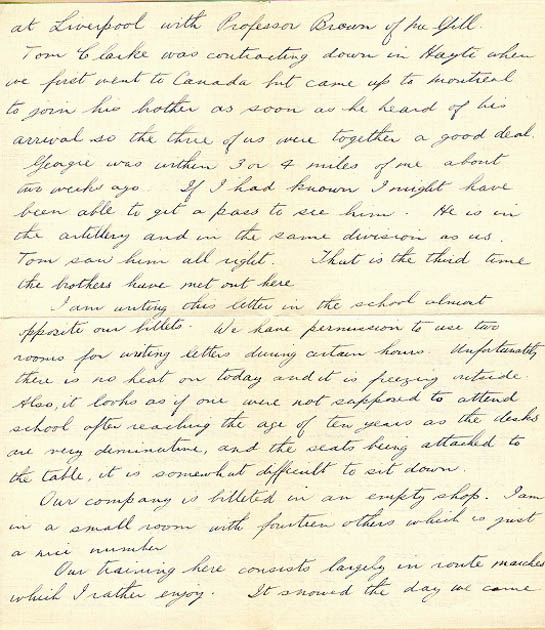 at Liverpool with Professor Brown of McGill.
Tom Clarke was contracting down in Hayti when
we first went to Canada but came up to Montreal
to join his brother as soon as he heard of his
arrival so the three of us were together a good deal.
Georgie was within 3 or 4 miles of me about
two weeks ago. If I had known I might have
been able to get a pass to see him. He is in
the artillery and in the same division as us.
Tom saw him all right. That is the third time
the brothers have met out here
I am writing this letter in the school almost
opposite our billets. We have permission to use two
rooms for writing letters during certain hours. Unfortunately
there is no heat on today and it is freezing outside.
Also, it looks as if one were not supposed to attend
school after reaching the age of ten years as the desks
are very deminutive, and the seats being attached to
the table, it is somewhat difficult to sit down.
Our company is billeted in an empty shop. I am
in a small room with fourteen others which is just
a nice number
Our training here consists largely in route marches
which I rather enjoy. It snowed the day we came